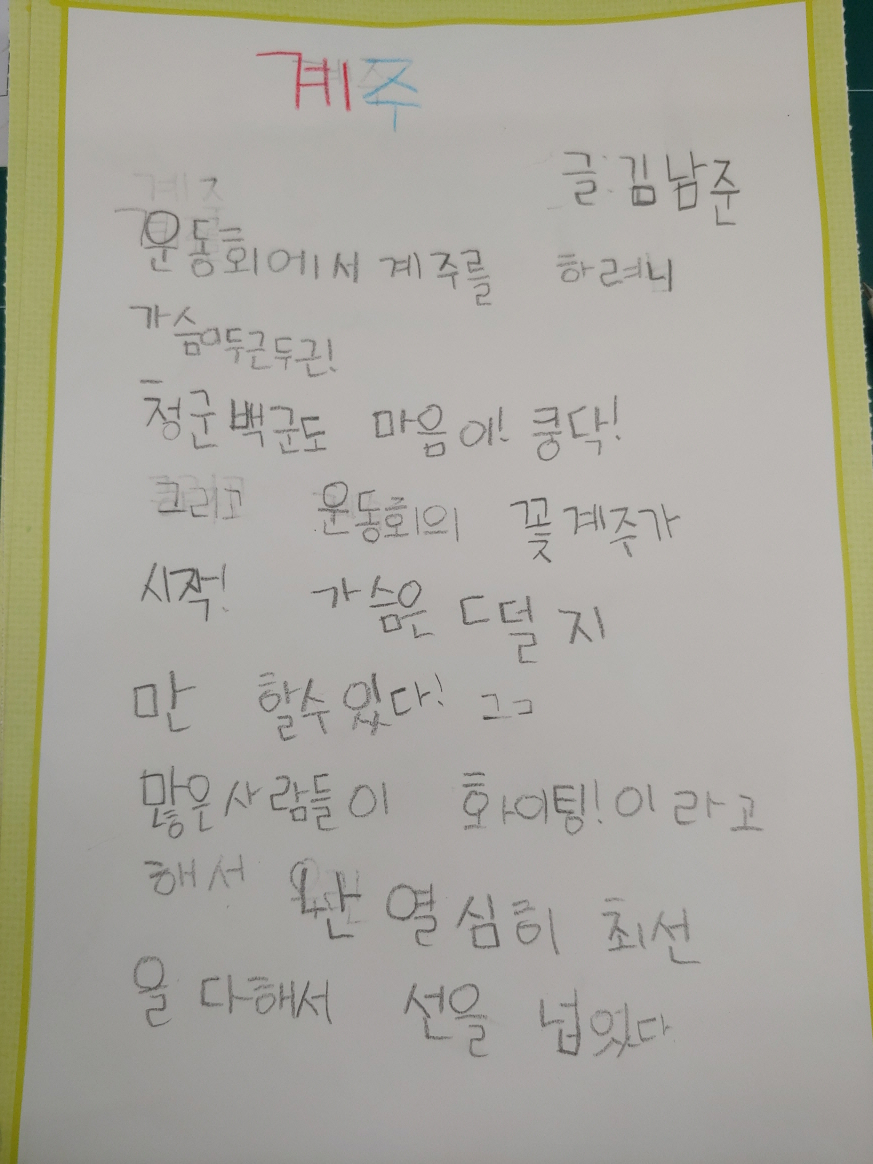 계주
글:김남준
운동회에서 계주를 하려니
가슴이두근두근!
청군백군도 마음이! 쿵닥!
그리고 운동회의 꽃계주가
시작! 가슴은 ㄷ덜지
만 할수있다!
많은사람들이 화이팅!이라고
해서 열심히 최선
을 다해서 선을 넙있다